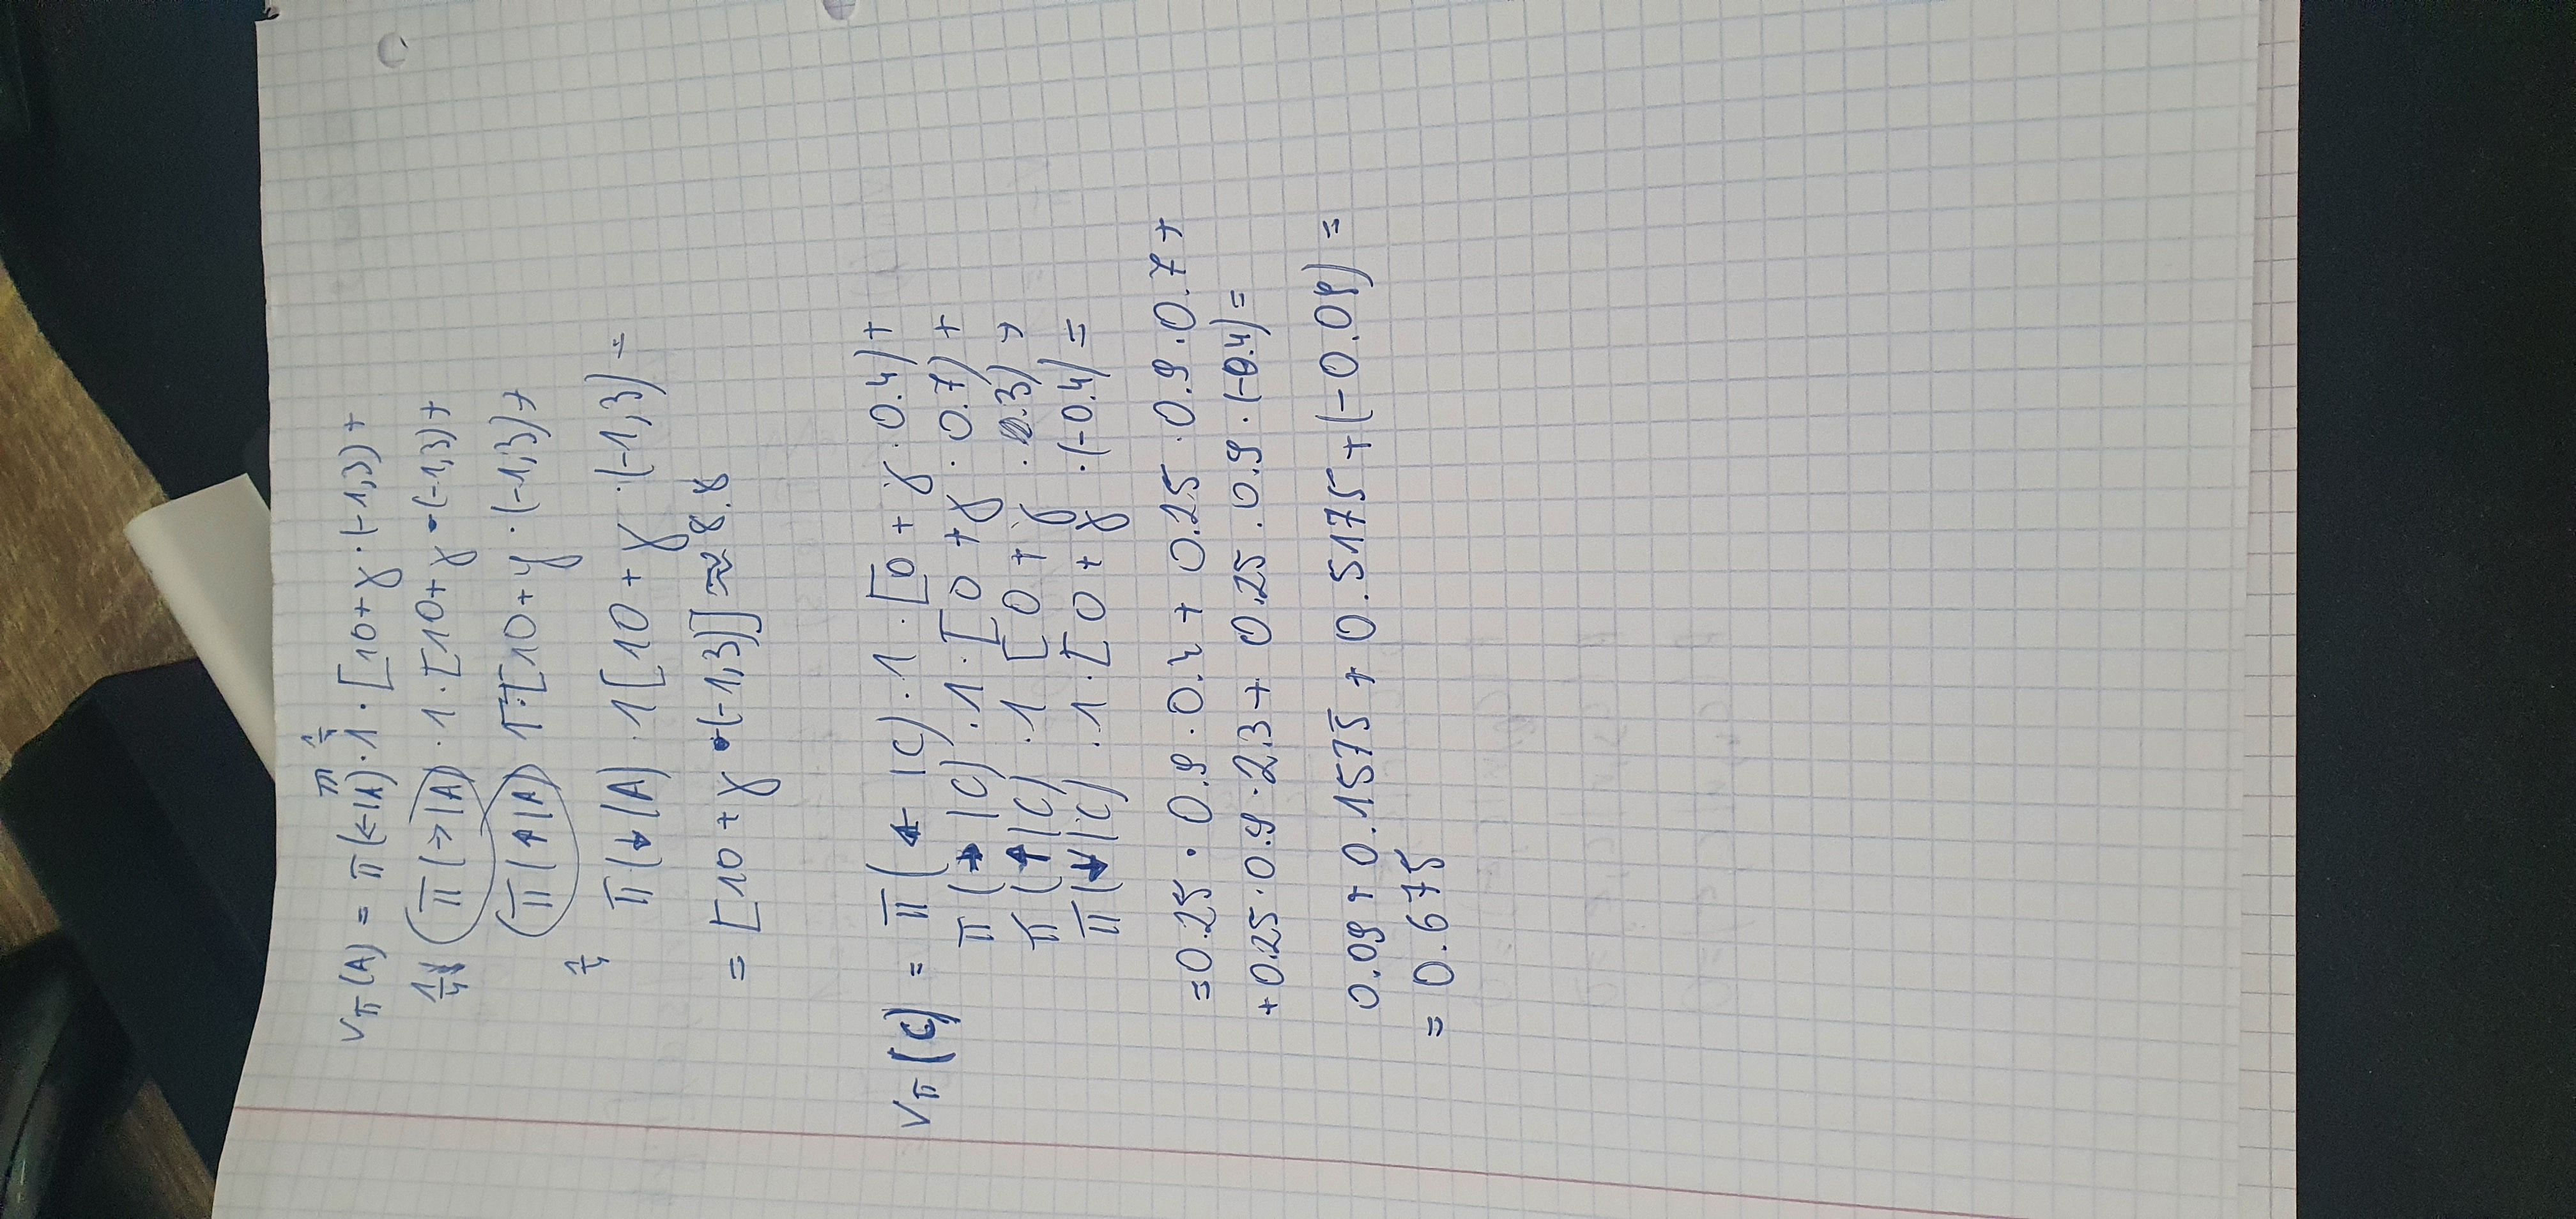 π 1/4
V_π(A) = π(←|A) · 1 · [10 + γ · (-1,3) +
1/4 π(→|A) · 1 · [10 + γ · (-1,3) +
π(↑|A) 1 · [10 + γ · (-1,3) +
1/4
π(↓|A) · 1 [10 + γ · (-1,3) =
= [10 + γ · (-1,3)] ≈ 8.8
V_π(C) = π(← |C) · 1 · [0 + γ · 0.4) +
π(→ |C) · 1 · [0 + γ · 0.7) +
π(↑|C) · 1 [0 + γ · 2.3) +
π(↓|C) · 1 · [0 + γ · (-0.4) =
= 0.25 · 0.9 · 0.4 + 0.25 · 0.9 · 0.7 +
+ 0.25 · 0.9 · 2.3 + 0.25 · 0.9 · (-0.4) =
0.09 + 0.1575 + 0.5175 + (-0.09) =
= 0.675